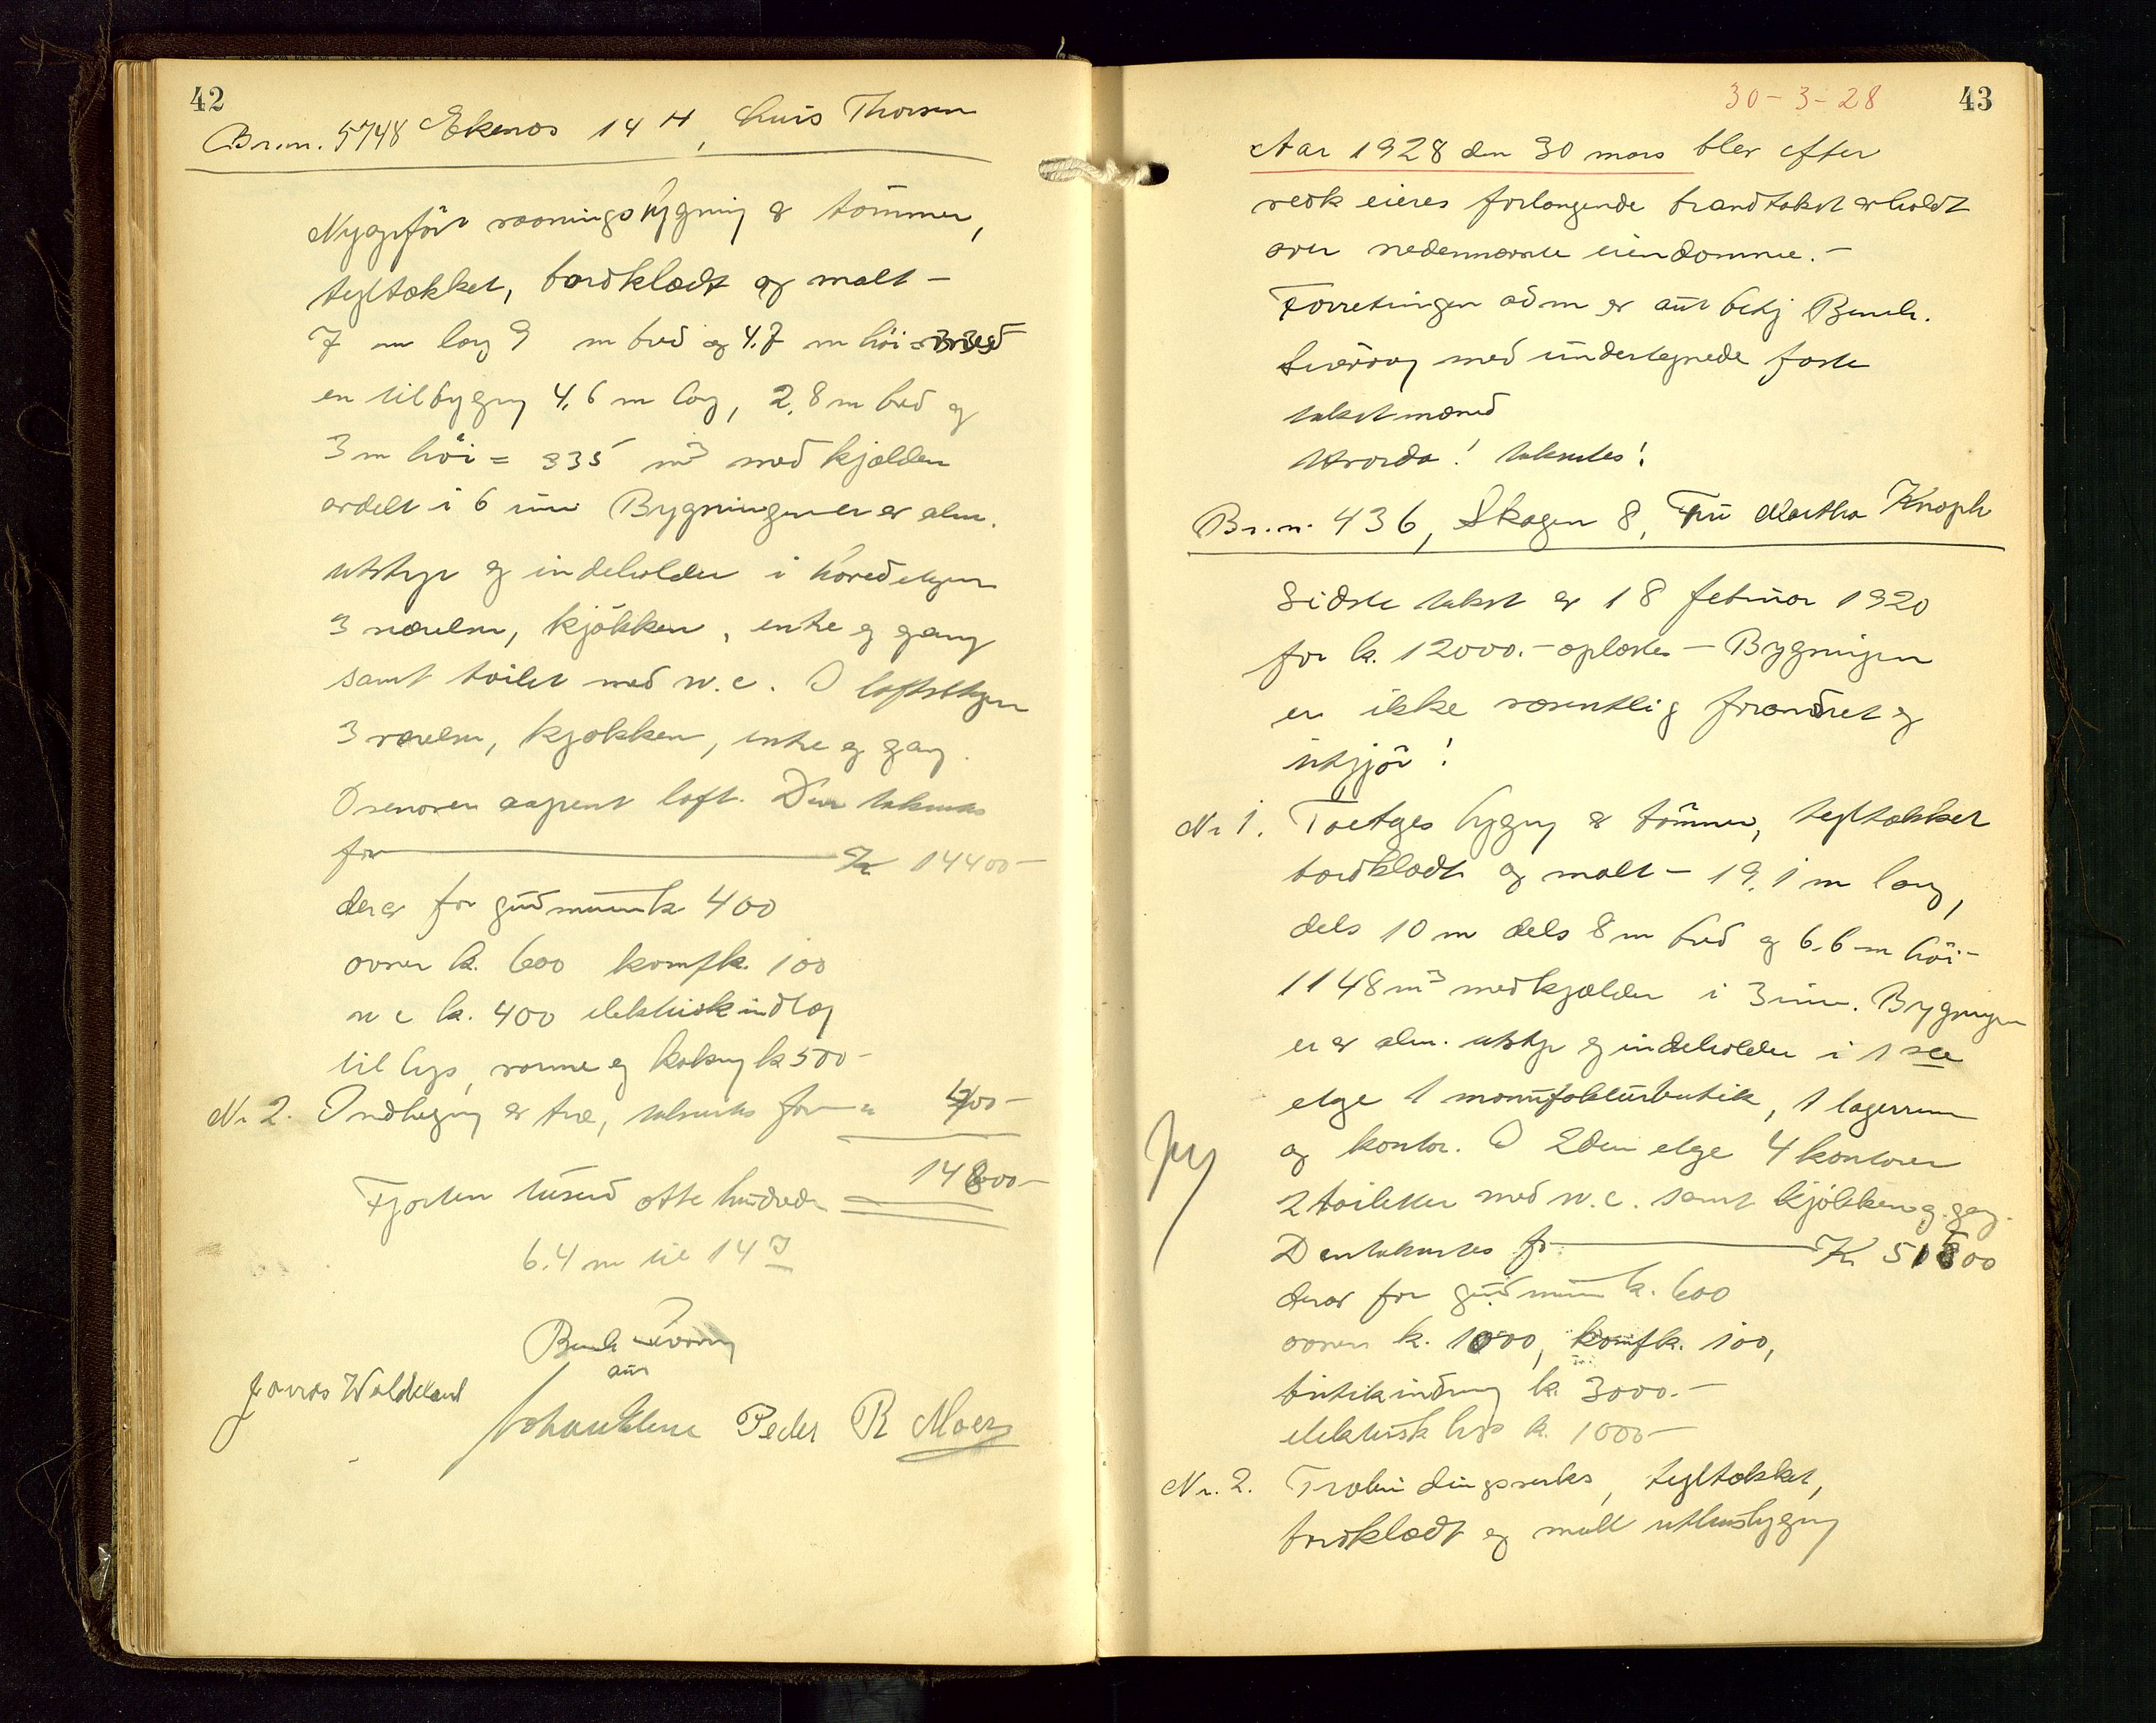 42
Br.nr. 5748 Ekenes 14 H, Thorsen
Nyopført vaaningsbygning af tømmer,
tegltækket, bordklædt og malt -
7 m lang 9 m bred og 4.7 m høi
en tilbygning 4,6 m lang, 2,8 m bred og
3 m høi = 335 m³ med kjælder
avdelt i 6 rum Bygningen er alm.
utstyr og indeholder i hovedetagen
3 værelser, kjøkken, entre og gang
samt toilet med w.c. I loftsetagen
3 værelser, kjøkken, entre og gang.
Ovenover aapent loft. Den takseres
for Kr 14400-
derav for grundmuren kr 400
ovner kr. 600 komf kr. 100
w c kr. 400 elektrisk indlag
til lys, varme og kokning kr 500-
Nr 2. Indhegning av træ, takseres for - " 400-
14800-
Fjorten tusend otte hundrede
6.4 m til 14 J
Bench Sværøy
aut
Jonas Waldeland
Peder R Moer
30-3-28
43
Aar 1928 den 30 mars blev efter
vedk eieres forlangende brandtakst avholdt
over nedennævnte eiendomme. -
Forretningen adm av aut betj Bench.
Sværøy med undertegnede faste
takstmænd
Hvorda! takseres!
Br.nr. 436, Skagen 8, Fru Martha Knoph
Sidste takst er 18 februar 1920
for kr. 12000.- oplæstes - Bygningen
er ikke væsentlig forandret og
utgjør!
Nr 1. Toetages bygning av tømmer, tegltækket
bordklædt og malt - 19,1 m lang,
dels 10 m dels 8 m bred og 6.6 m høi -
1148 m³ med kjælder i 3 rum. Bygningen
er av alm. utstyr og indeholder i 1ste
etage 1 manufakturbutik, 1 lagerrum
og kontor. I 2den etage 4 kontorer
2 toiletter med w.c. samt kjøkken og gang.
Den takseres for Kr 51500
derav for grundmur kr. 600
ovner kr. 1000, komf kr. 100,
butikindredning kr. 3000.-
elektrisk lys kr. 1000-
Nr. 2. Træbindingsverks, tegltækket,
bordklædt og malt uthusbygning